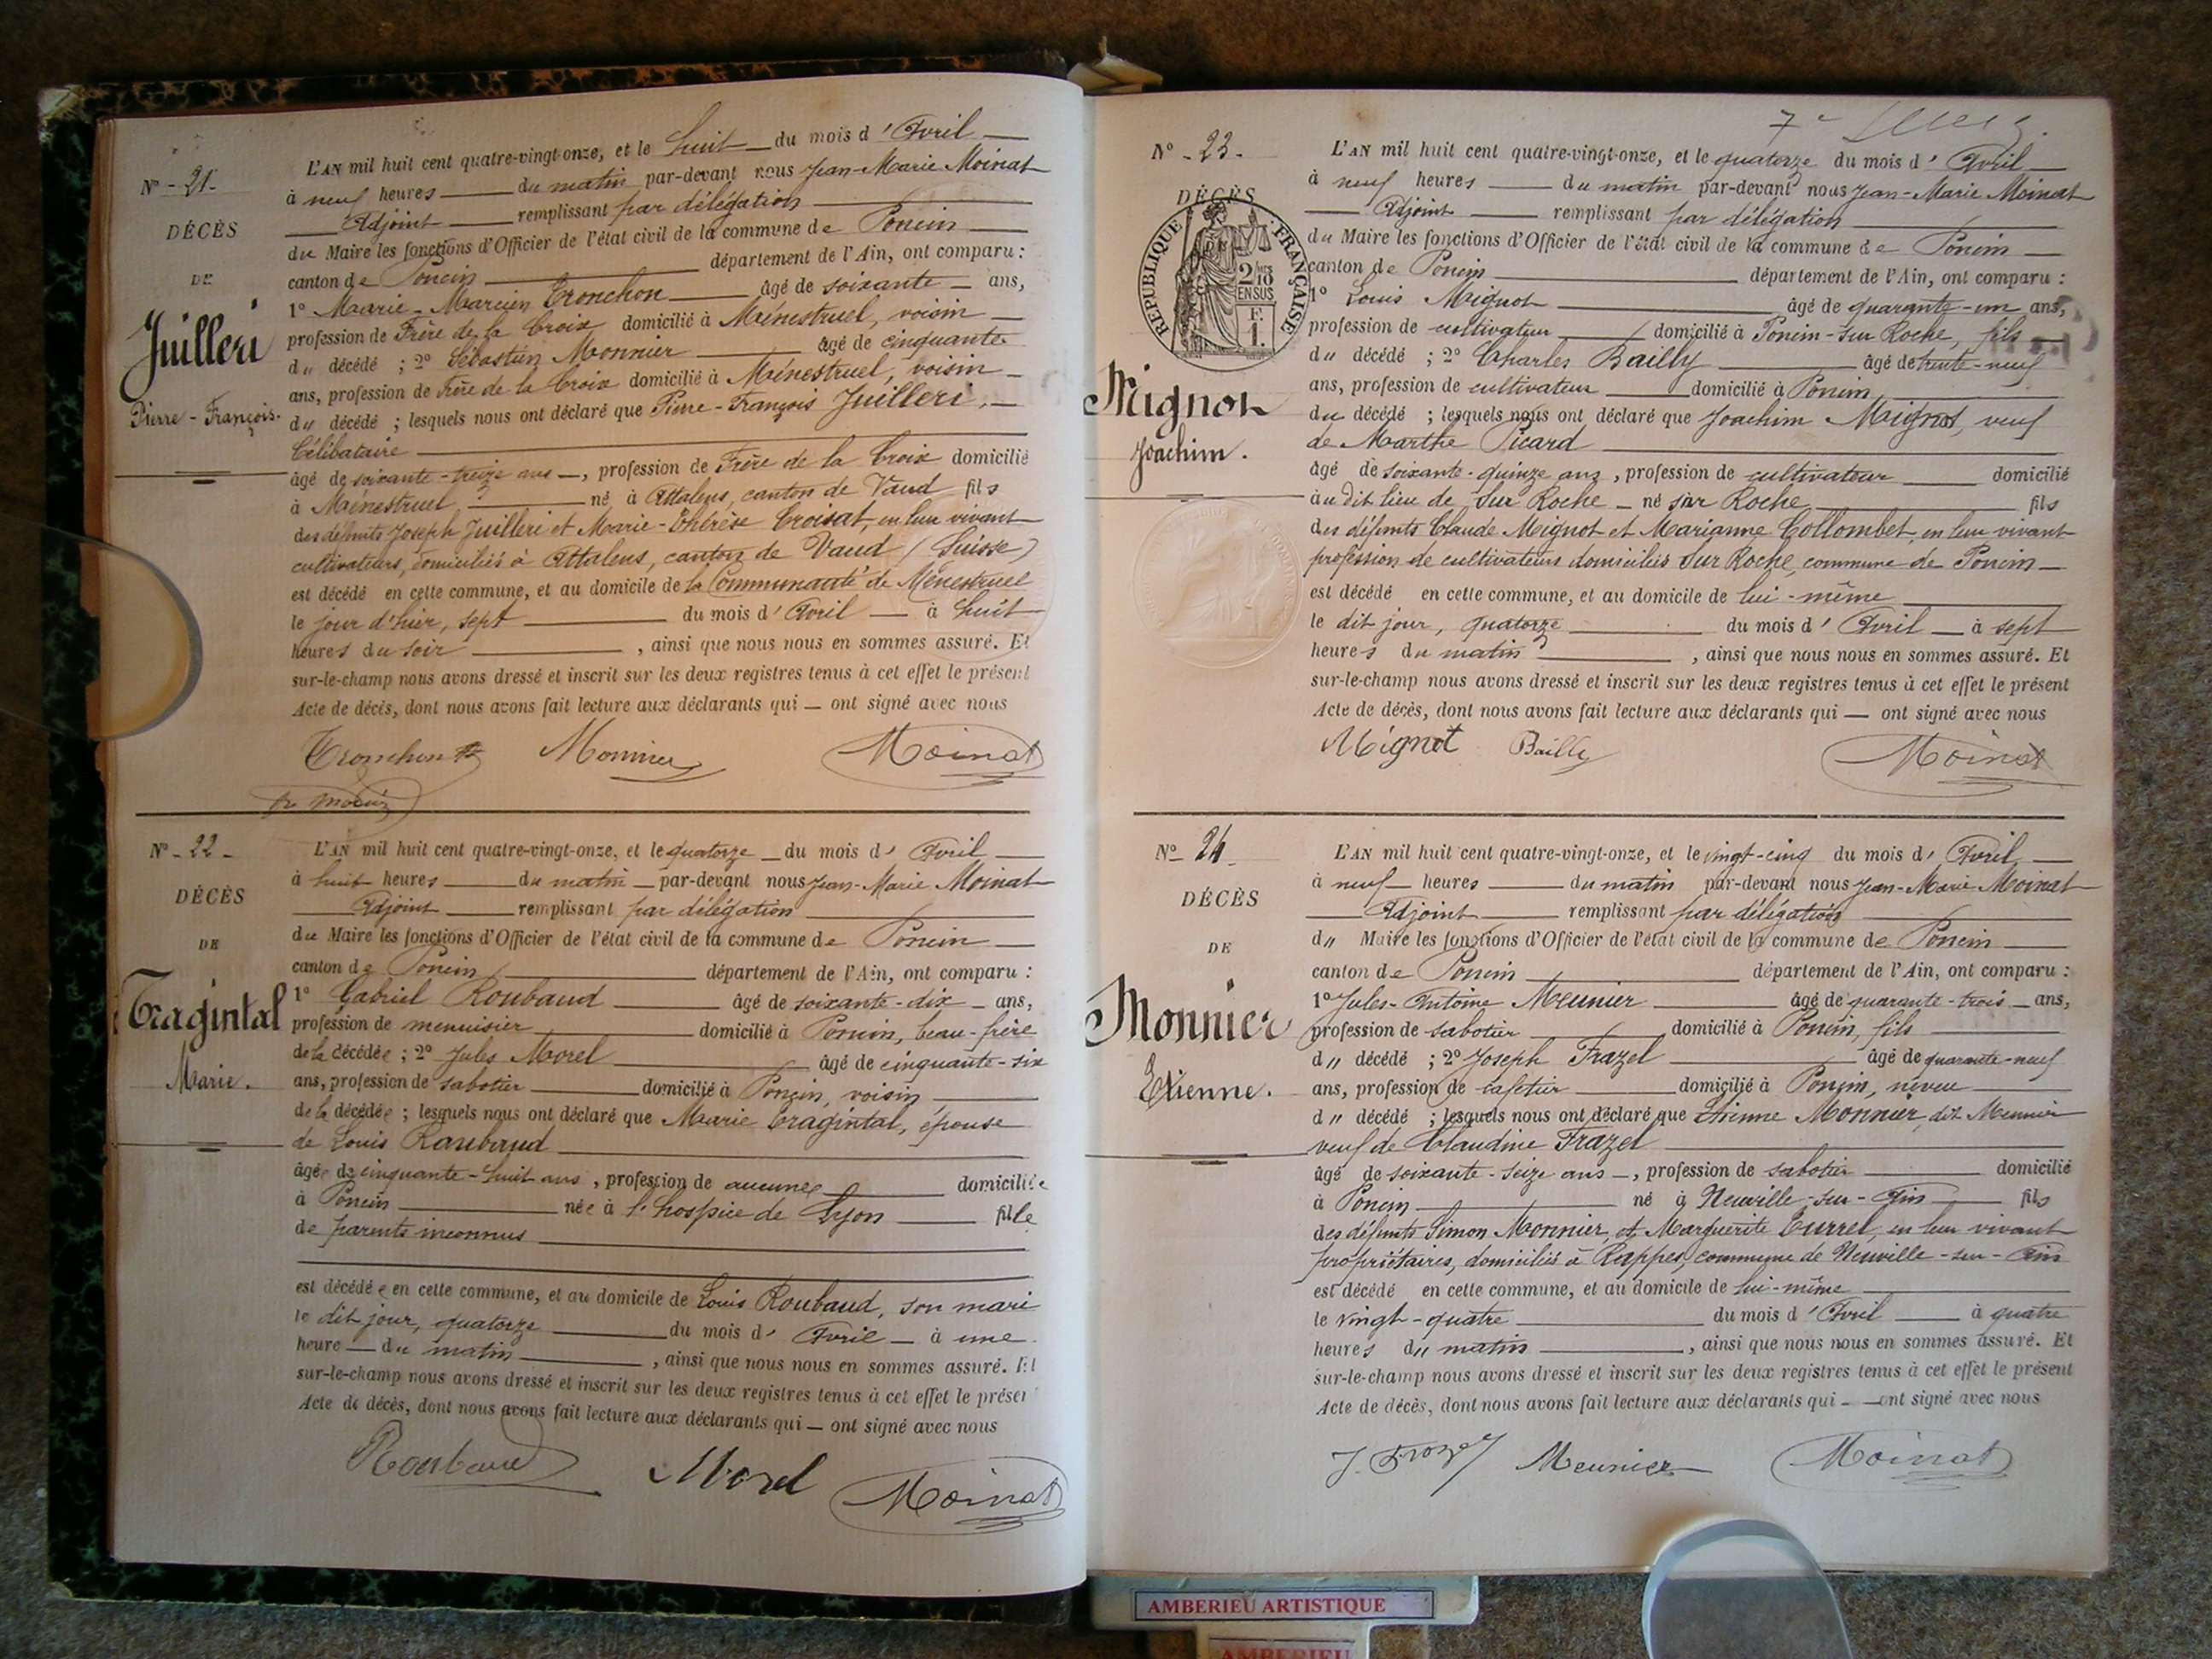 N° - 21 -
DÉCÈS
DE
Juilleri
Pierre - François.
L'AN mil huit cent quatre-vingt-onze, et le huit du mois d' Avril
à neuf heures du matin par-devant nous Jean-Marie Moinat
Adjoint remplissant par délégation
du Maire les fonctions d'Officier de l'état civil de la commune de Poncin
canton de Poncin département de l'Ain, ont comparu :
1° Marie - Marcien Tronchon âgé de soixante ans,
profession de Frère de la Croix domicilié à Ménestruel, voisin
du décédé ; 2° Sébastien Monnier âgé de cinquante
ans, profession de Frère de la Croix domicilié à Ménestruel, voisin
du décédé ; lesquels nous ont déclaré que Pierre - François Juilleri,
Célibataire
âgé de soixante - treize ans, profession de Frère de la Croix domicilié
à Ménestruel né à Attalens, canton de Vaud fils
des défunts Joseph Juilleri et Marie - Thérèse Croisat, en leur vivant
cultivateurs, domiciliés à Attalens, canton de Vaud (Suisse)
est décédé en cette commune, et au domicile de la Communauté de Ménestruel
le jour d'hier, sept du mois d' Avril à huit
heures du soir, ainsi que nous nous en sommes assuré. Et
sur-le-champ nous avons dressé et inscrit sur les deux registres tenus à cet effet le présent
Acte de décès, dont nous avons fait lecture aux déclarants qui ont signé avec nous
Tronchon Monnier Moinat
N° - 22 -
DÉCÈS
DE
Tragintal
Marie.
L'AN mil huit cent quatre-vingt-onze, et le quatorze du mois d' Avril
à huit heures du matin par-devant nous Jean-Marie Moinat
Adjoint remplissant par délégation
du Maire les fonctions d'Officier de l'état civil de la commune de Poncin
canton de Poncin département de l'Ain, ont comparu :
1° Gabriel Roubaud âgé de soixante - dix ans,
profession de menuisier domicilié à Poncin, beau - frère
de la décédée ; 2° Jules Morel âgé de cinquante - six
ans, profession de sabotier domicilié à Poncin, voisin
de la décédée ; lesquels nous ont déclaré que Marie Tragintal, épouse
de Louis Roubaud
âgée de cinquante - huit ans, profession de aucune domiciliée
à Poncin née à l'hospice de Lyon fille
de parents inconnus
est décédée en cette commune, et au domicile de Louis Roubaud, son mari
le dit jour, quatorze du mois d' Avril à une
heure du matin, ainsi que nous nous en sommes assuré. Et
sur-le-champ nous avons dressé et inscrit sur les deux registres tenus à cet effet le présent
Acte de décès, dont nous avons fait lecture aux déclarants qui ont signé avec nous
Roubaud Morel Moinat
N° - 23 -
DÉCÈS
RÉPUBLIQUE FRANÇAISE
2/10 EN SUS
F. 1.
Mignot
Joachim.
L'AN mil huit cent quatre-vingt-onze, et le quatorze du mois d' Avril
à neuf heures du matin par-devant nous Jean-Marie Moinat
Adjoint remplissant par délégation
du Maire les fonctions d'Officier de l'état civil de la commune de Poncin
canton de Poncin département de l'Ain, ont comparu :
1° Louis Mignot âgé de quarante - un ans,
profession de cultivateur domicilié à Poncin - Sur Roche, fils
du décédé ; 2° Charles Bailly âgé de trente - neuf
ans, profession de cultivateur domicilié à Poncin
du décédé ; lesquels nous ont déclaré que Joachim Mignot, veuf
de Marthe Picard
âgé de soixante - quinze ans, profession de cultivateur domicilié
au dit lieu de Sur Roche né sur Roche fils
des défunts Claude Mignot et Marianne Collombet, en leur vivant
profession de cultivateurs domiciliés Sur Roche, commune de Poncin
est décédé en cette commune, et au domicile de lui - même
le dit jour, quatorze du mois d' Avril à sept
heures du matin, ainsi que nous nous en sommes assuré. Et
sur-le-champ nous avons dressé et inscrit sur les deux registres tenus à cet effet le présent
Acte de décès, dont nous avons fait lecture aux déclarants qui ont signé avec nous
Mignot Bailly Moinat
N° 24
DÉCÈS
DE
Monnier
Etienne.
L'AN mil huit cent quatre-vingt-onze, et le vingt - cinq du mois d' Avril
à neuf heures du matin par-devant nous Jean-Marie Moinat
Adjoint remplissant par délégation
du Maire les fonctions d'Officier de l'état civil de la commune de Poncin
canton de Poncin département de l'Ain, ont comparu :
1° Jules - Antoine Meunier âgé de quarante - trois ans,
profession de sabotier domicilié à Poncin, fils
du décédé ; 2° Joseph Frazel âgé de quarante - neuf
ans, profession de cafetier domicilié à Poncin, neveu
du décédé ; lesquels nous ont déclaré que Etienne Monnier, dit Meunier
veuf de Claudine Frazel
âgé de soixante - seize ans, profession de sabotier domicilié
à Poncin né à Neuville - sur - Ain fils
des défunts Simon Monnier et Marguerite Turrel, en leur vivant
propriétaires, domiciliés à Rappes, commune de Neuville - sur - Ain
est décédé en cette commune, et au domicile de lui - même
le vingt - quatre du mois d' Avril à quatre
heures du matin, ainsi que nous nous en sommes assuré. Et
sur-le-champ nous avons dressé et inscrit sur les deux registres tenus à cet effet le présent
Acte de décès, dont nous avons fait lecture aux déclarants qui ont signé avec nous
J. Frazel Meunier Moinat
AMBERIEU ARTISTIQUE
AMBERIEU